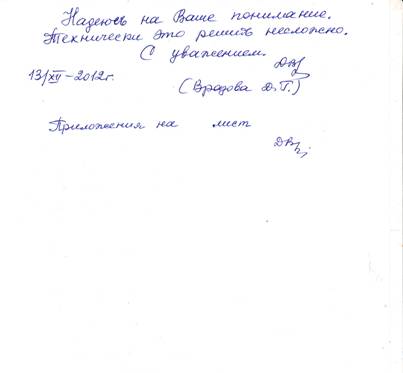 Надеюсь на Ваше понимание.
Технически это решить несложно.
С уважением.
13/XII-2012г.
(Врадова Д.Г.)
Приложения на лист